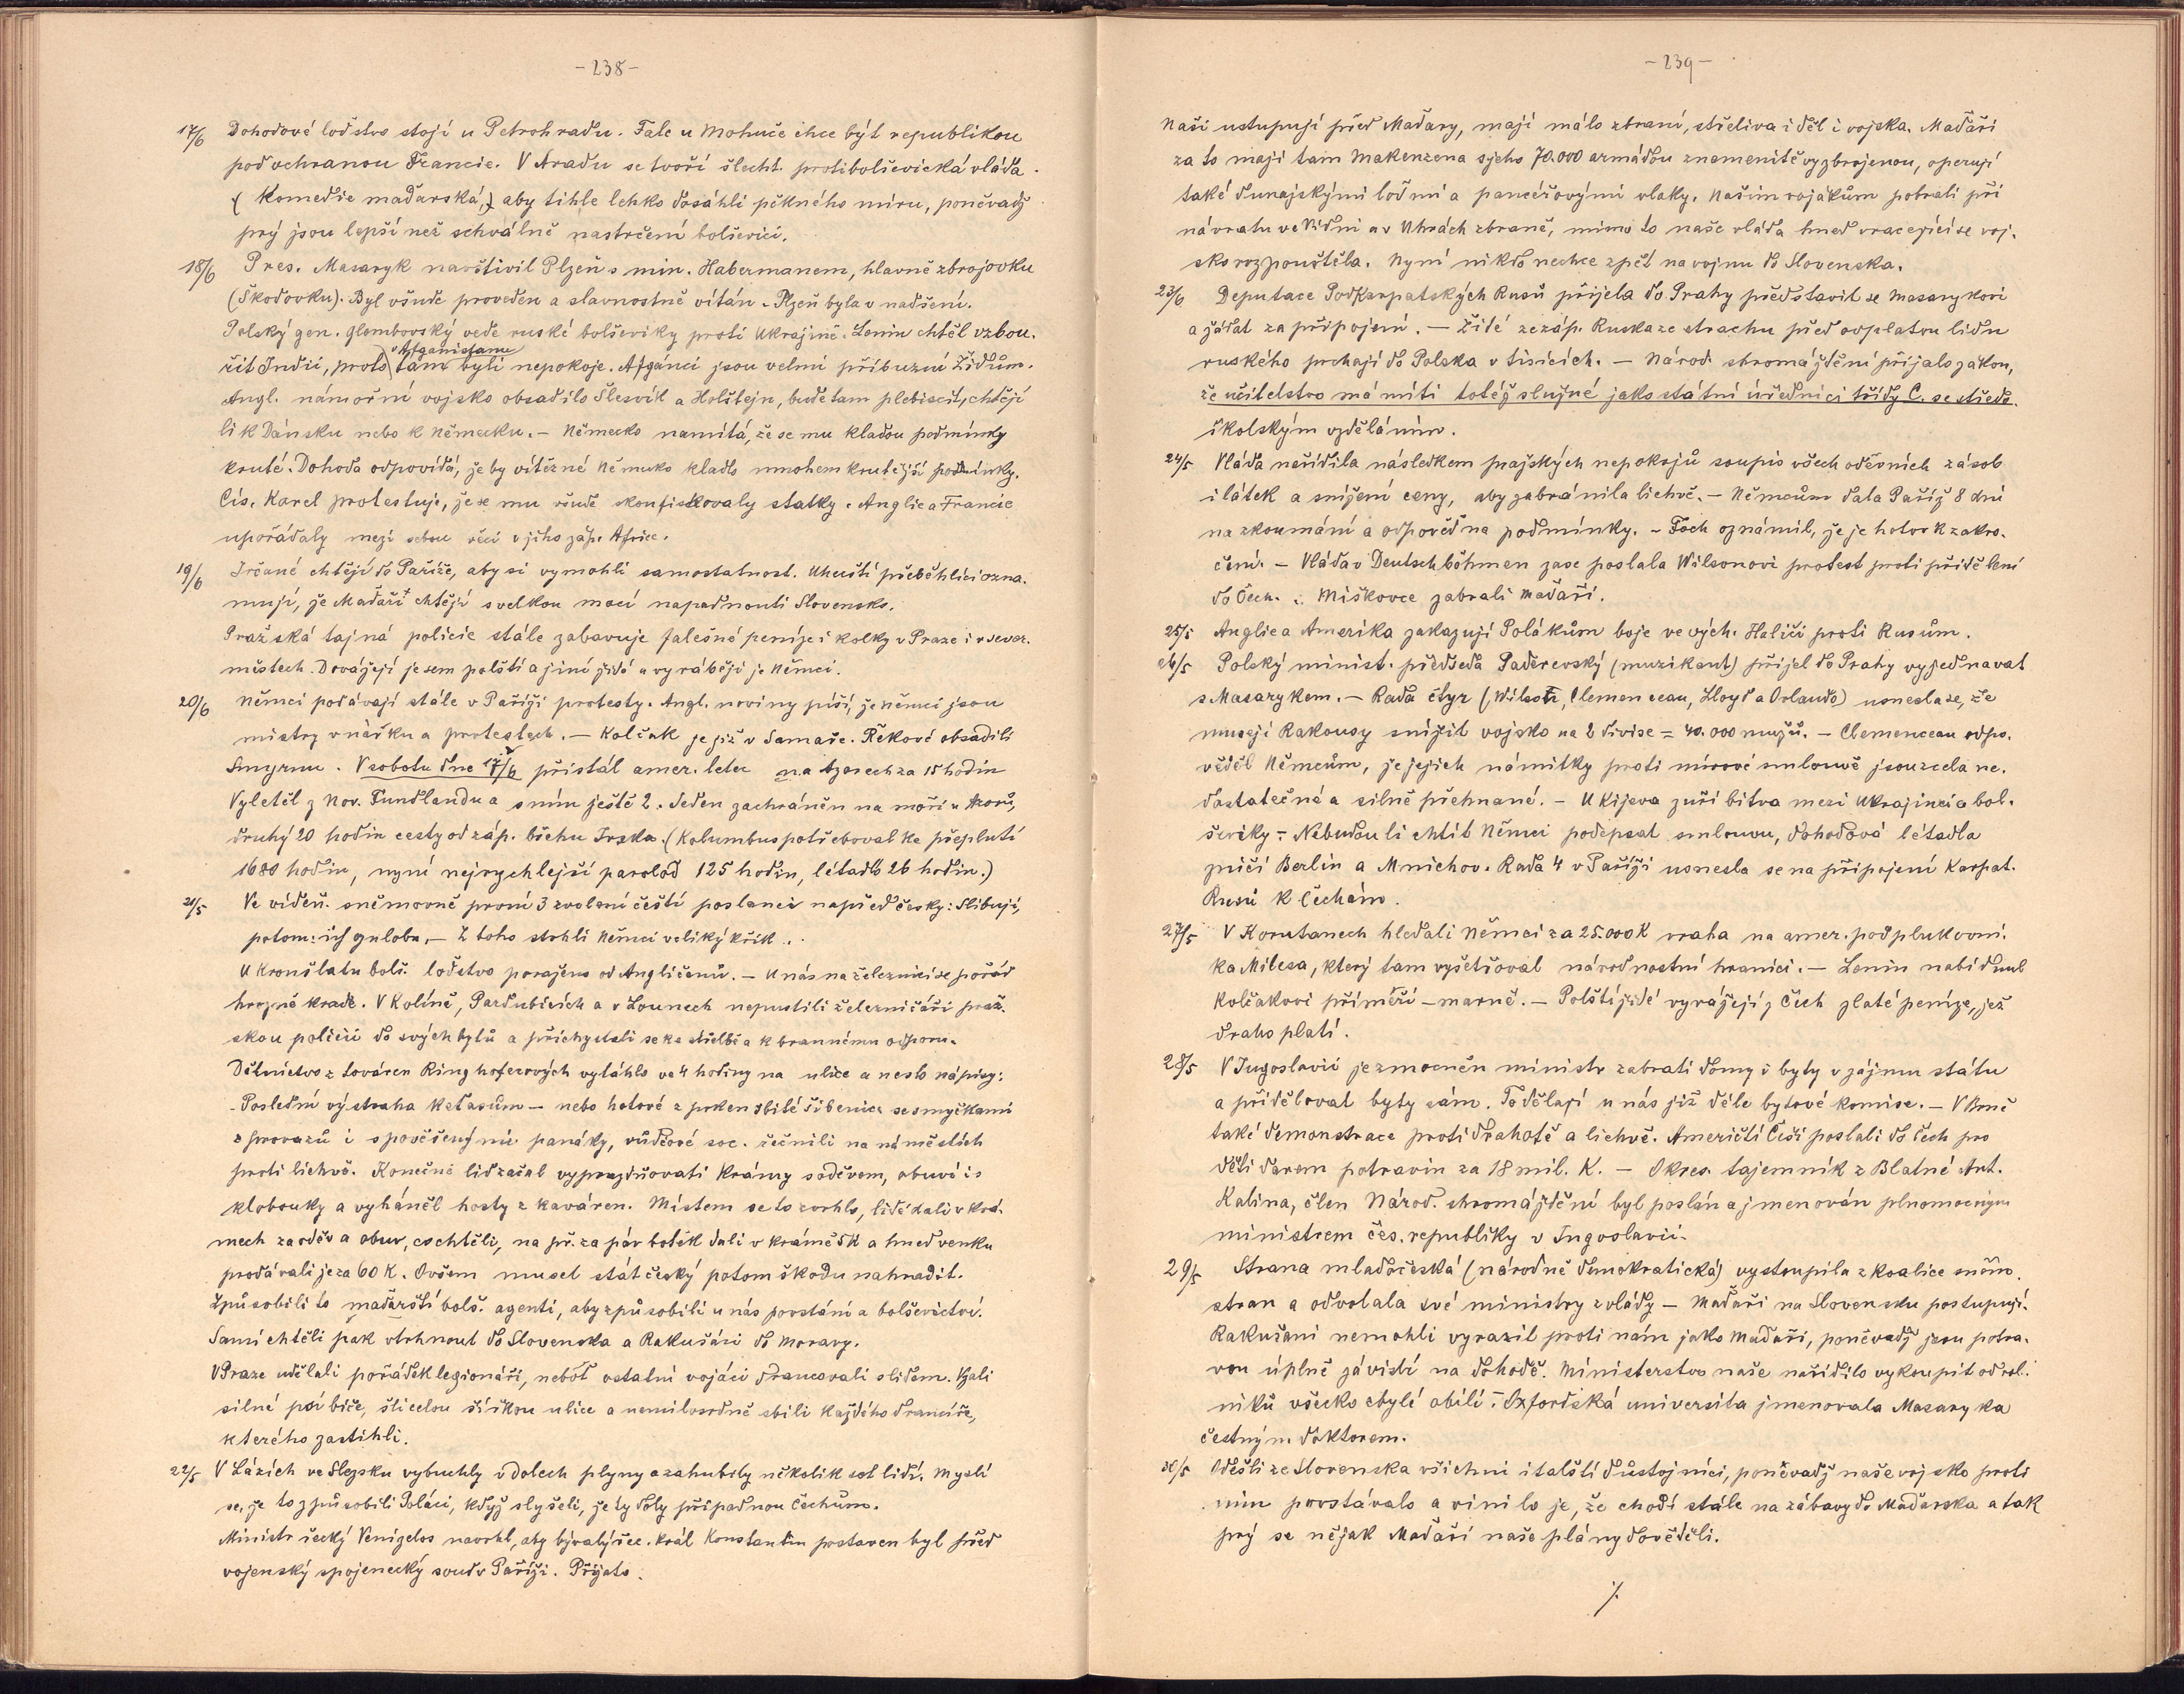 -238-
17/6 Dohodové loďstvo stojí u Petrohradu. Fale u Mohuče chce být republikou
pod ochranou Francie. V Aradu se tvoří šlecht. protibolševická vláda.
(Komedie maďarská,) aby tihle lehko dosáhli pěkného míru, poněvadž
prý jsou lepší než schválně nastrčení bolševici.
18/6 Pres. Masaryk navštívil Plzeň s min. Habermanem, hlavně zbrojovku
(Škodovku). Byl všude proveden a slavnostně vítán. Plzeň byla v nadšení.
Polský gen. Glombovský vede ruské bolševiky proti Ukrajině. Lenin chtěl vzbou-
v Afganistanu
řit Indii, proto tam byli nepokoje. Afgánci jsou velmi příbuzní Židům.
Angl. námořní vojsko obsadilo Šlesvik a Holštejn, bude tam plebiscit, chtějí
li k Dánsku nebo k Německu. – Německo namítá, že se mu kladou podmínky
kruté. Dohoda odpovídá, že by vítězné Německo kladlo mnohem krutější podmínky.
Cís. Karel protestuje, že se mu všude skonfiskovaly statky. Anglie a Francie
upořádaly mezi sebou věci v jihozáp. Africe.
19/6 Irčané chtějí do Paříže, aby si vymohli samostatnost. Uherští přeběhlíci ozna-
mují, že Maďaři chtějí s velkou mocí napadnouti Slovensko.
Pražská tajná policie stále zabavuje falešné peníze i kolky v Praze i v sever.
městech. Dovážejí je sem polští a jiní židé a vyrábějí je Němci.
20/6 Němci podávají stále v Paříži protesty. Angl. noviny píší, že Němci jsou
mistry v nářku a protestech. – Kolčak je již v Samaře. Řekové obsadili
Smyrnu. V sobotu dne 17/6 přistál amer. letec na Azorech za 15 hodin
Vyletěl z Nov. Fundlandu a s ním ještě 2. Jeden zachráněn na moři u Azorů,
druhý 20 hodin cesty od záp. břehu Irska. (Kolumbus potřeboval ke přeplutí
1680 hodin, nyní nejrychlejší paroloď 125 hodin, létadlo 26 hodin.)
21/5 Ve vídeň. sněmovně první 3 zvolení čeští poslanci napřed česky: Slibuji,
potom: ich gelobe. – Z toho strhli Němci veliký křik.
U Kronštatu bolš. loďstvo poraženo od Angličanů. – U nás na železnici se pořád
hrozně krade. V Kolíně, Pardubicích a v Lounech nepustili železničáři praž-
skou policii do svých bytů a přichystali se ke střelbě a k brannému odporu.
Dělnictvo z továren Ringhoferových vytáhlo ve 4 hodiny na ulice a neslo nápisy:
Poslední výstraha keťasům – nebo hotové z prken zbité šibenice se smyčkami
z provazů i s pověšenými panáky, vůdcové soc. řečnili na náměstích
proti lichvě. Konečně lid začal vyprazdňovati krámy s oděvem, obuví i s
klobouky a vyháněl hosty z kaváren. Místem se to zvrhlo, lidé dali v krá-
mech za oděv a obuv, co chtěli, na př. za pár botek dali v krámě 5 K a hned venku
prodávali je za 60 K. Ovšem musel stát český potom škodu nahradit.
Způsobili to maďarští bolš. agenti, aby způsobili u nás povstání a bolševictví.
Sami chtěli pak vtrhnout do Slovenska a Rakušáci do Moravy.
V Praze udělali pořádek legionáři, neboť ostatní vojáci drancovali s lidem. Vzali
silné psí biče, šli celou šířkou ulice a nemilosrdně sbili každého drancíře,
kterého zastihli.
22/5 V Lázích ve Slezsku vybuchly v dolech plyny a zahubily několik set lidí. Myslí
se, že to způsobili Poláci, když slyšeli, že ty doly připadnou Čechům.
Ministr řecký Venizelos navrhl, aby bývalý řec. král Konstantin postaven byl před
vojenský spojenecký soud v Paříži. Přijato.
-239-
Naši ustupují před Maďary, mají málo zbraní, střeliva i děl i vojska. Maďaři
za to mají tam Makenzena s jeho 70.000 armádou znamenitě vyzbrojenou, operují
také dunajskými loďmi a pancéřovými vlaky. Našim vojákům pobrali při
návratu ve Vídni a v Uhrách zbraně, mimo to naše vláda hned vracející se voj-
sko rozpouštěla. Nyní nikdo nechce zpět na vojnu do Slovenska.
23/6 Deputace Podkarpatských Rusů přijela do Prahy představit se Masarykovi
a žádat za připojení. – Židé ze záp. Ruska ze strachu před odplatou lidu
ruského prchají do Polska v tisících. – Národ. shromáždění přijalo zákon,
že učitelstvo má míti totéž služné jako státní úředníci třídy C. se středo-
školským vzděláním.
24/5 Vláda nařídila následkem pražských nepokojů soupis všech oděvních zásob
i látek a snížení ceny, aby zabránila lichvě. – Němcům dala Paříž 8 dní
na zkoumání a odpověď na podmínky. – Foch oznámil, že je hotov k zakro-
čení. – Vláda v Deutschböhmen zase poslala Wilsonovi protest proti přidělení
do Čech. – Miškovce zabrali Maďaři.
25/5 Anglie a Amerika zakazují Polákům boje ve vých. Haliči proti Rusům.
26/5 Polský minist. předseda Paderevský (muzikant) přijel do Prahy vyjednavat
s Masarykem. – Rada čtyř (Wilson, Clemenceau, Lloyd a Orlando) usnesla se, že
musejí Rakousy snížit vojsko na 2 divise = 40.000 mužů. – Clemenceau odpo-
věděl Němcům, že jejich námitky proti mírové smlouvě jsou zcela ne-
dostatečné a silně přehnané. – U Kijeva zuří bitva mezi Ukrajinci a bol-
ševiky – Nebudou li chtít Němci podepsat smlouvu, dohodová létadla
zničí Berlín a Mnichov. Rada 4 v Paříži usnesla se na připojení Karpat.
Rusů k Čechám.
27/5 V Korutanech hledali Němci za 25.000 K vraha na amer. podplukovní-
ka Milesa, který tam vyšetřoval národnostní hranici. – Lenin nabídnul
Kolčakovi příměří – marně. – Polští židé vyvážejí z Čech zlaté peníze, jež
draho platí.
28/5 V Jugoslavii je zmocněn ministr zabrati domy i byty v zájmu státu
a přiděloval byty sám. To dělají u nás již déle bytové komise. – V Brně
také demonstrace proti drahotě a lichvě. Američtí Češi poslali do Čech pro
děti darem potravin za 18 mil. K. – Okres. tajemník z Blatné Ant.
Kalina, člen Národ. shromáždění byl poslán a jmenován plnomocným
ministrem čes. republiky v Jugoslavii.
29/5 Strana mladočeská (národně demokratická) vystoupila z koalice sněm.
stran a odvolala své ministry z vlády – Maďaři na Slovensku postupují.
Rakušani nemohli vyrazit proti nám jako Maďaři, poněvadž jsou potra-
vou úplně závislí na dohodě. Ministerstvo naše nařídilo vykoupit od rol-
níků všecko zbylé obilí. – Oxfordská universita jmenovala Masaryka
čestným doktorem.
30/5 Odešli ze Slovenska všichni italští důstojníci, poněvadž naše vojsko proti
nim povstávalo a vinilo je, že chodí stále na zábavy do Maďarska a tak
prý se nějak Maďaři naše plány dověděli.